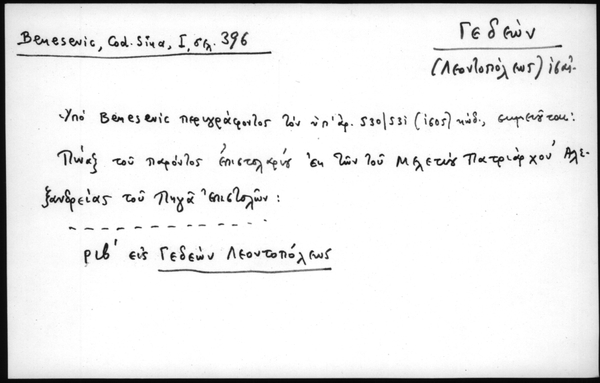 Benesenic, Cod. Sina, I, σελ. 396
Γεδεών
(Λεοντοπόλεως)
Ὑπό Benesenic περιγράφοντος τόν ὑπ' ἀρ. 530/531 (1605) κώδ., σημειοῦται:
Πίναξ τοῦ παρόντος ἐπιστολαρίου ἐκ τῶν τοῦ Μελετίου Πατριάρχου Ἀλε-
ξανδρείας τοῦ Πηγᾶ ἐπιστολῶν:
ριβ' εἰς Γεδεών Λεοντοπόλεως